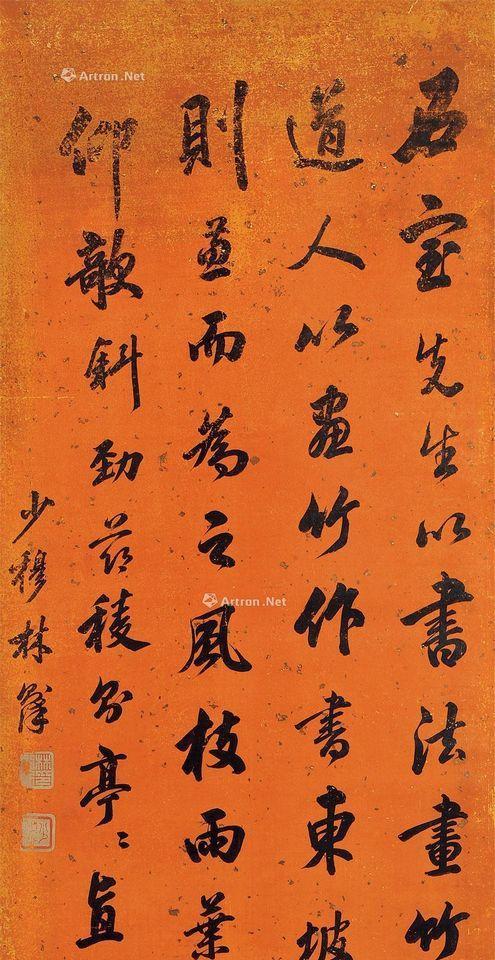 石室先生以書法畫竹
道人以畫竹作書東坡
則兼而為之風枝雨葉
仰欹斜勁稜亭〻直
少穆林則徐
Artron.Net
Artron.Net